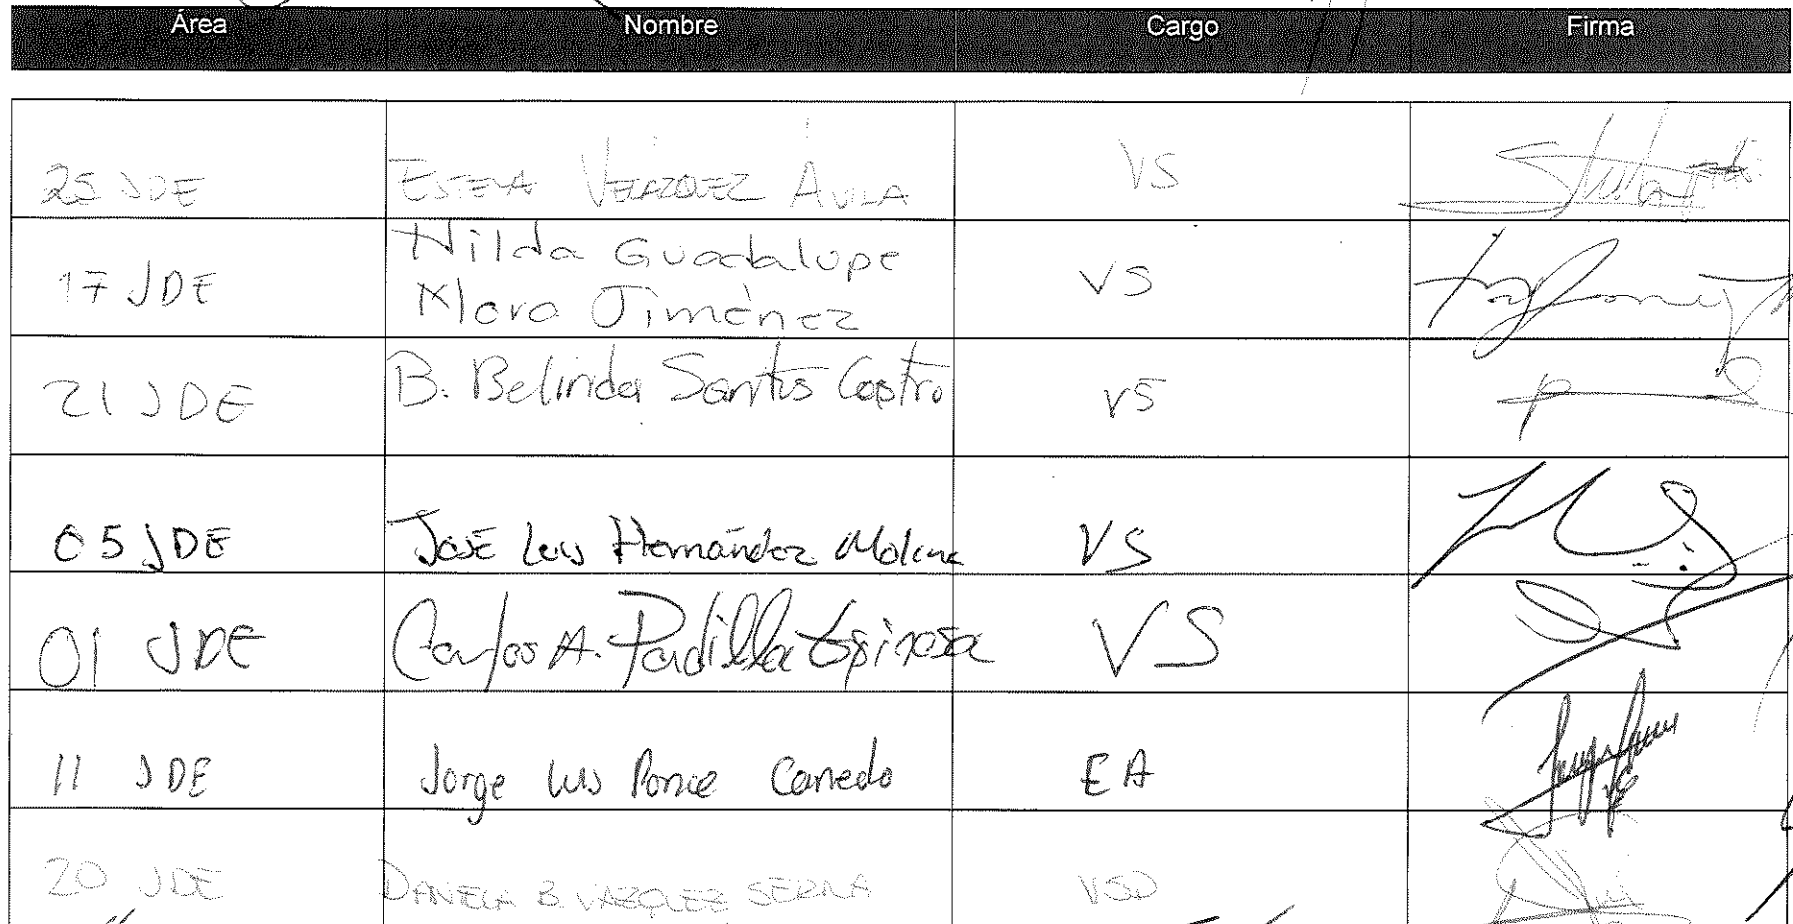 Área Nombre Cargo Firma
25 JDE ESTELA VELÁZQUEZ ÁVILA VS
17 JDE Nilda Guadalupe
Mora Jiménez VS
21 JDE B. Belinda Santos Castro VS
05 JDE José Luis Hernández Molina VS
01 JDE Carlos A. Padilla Espinosa VS
11 JDE Jorge Luis Ponce Canedo EA
20 JDE DANIELA B. VAZQUEZ SERNA VSD